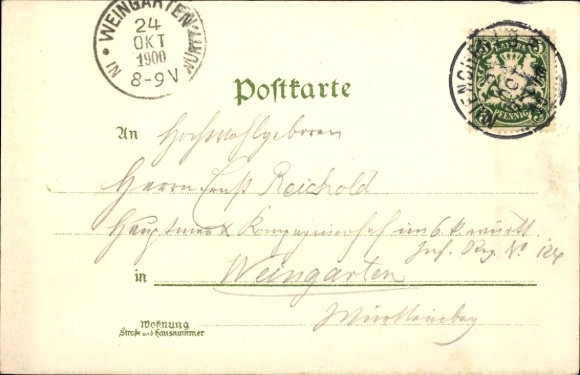 WEINGARTEN
24
OKT
1900
8-9 V
BAYERN
PFENNIG
Postkarte
An Hochwohlgeboren
Herrn Ernst Reichold
Hauptmann & Kompagniechef im 6. k. württ.
Inf. Reg. No 124
in Weingarten
Württemberg
Wohnung
Straße und Hausnummer